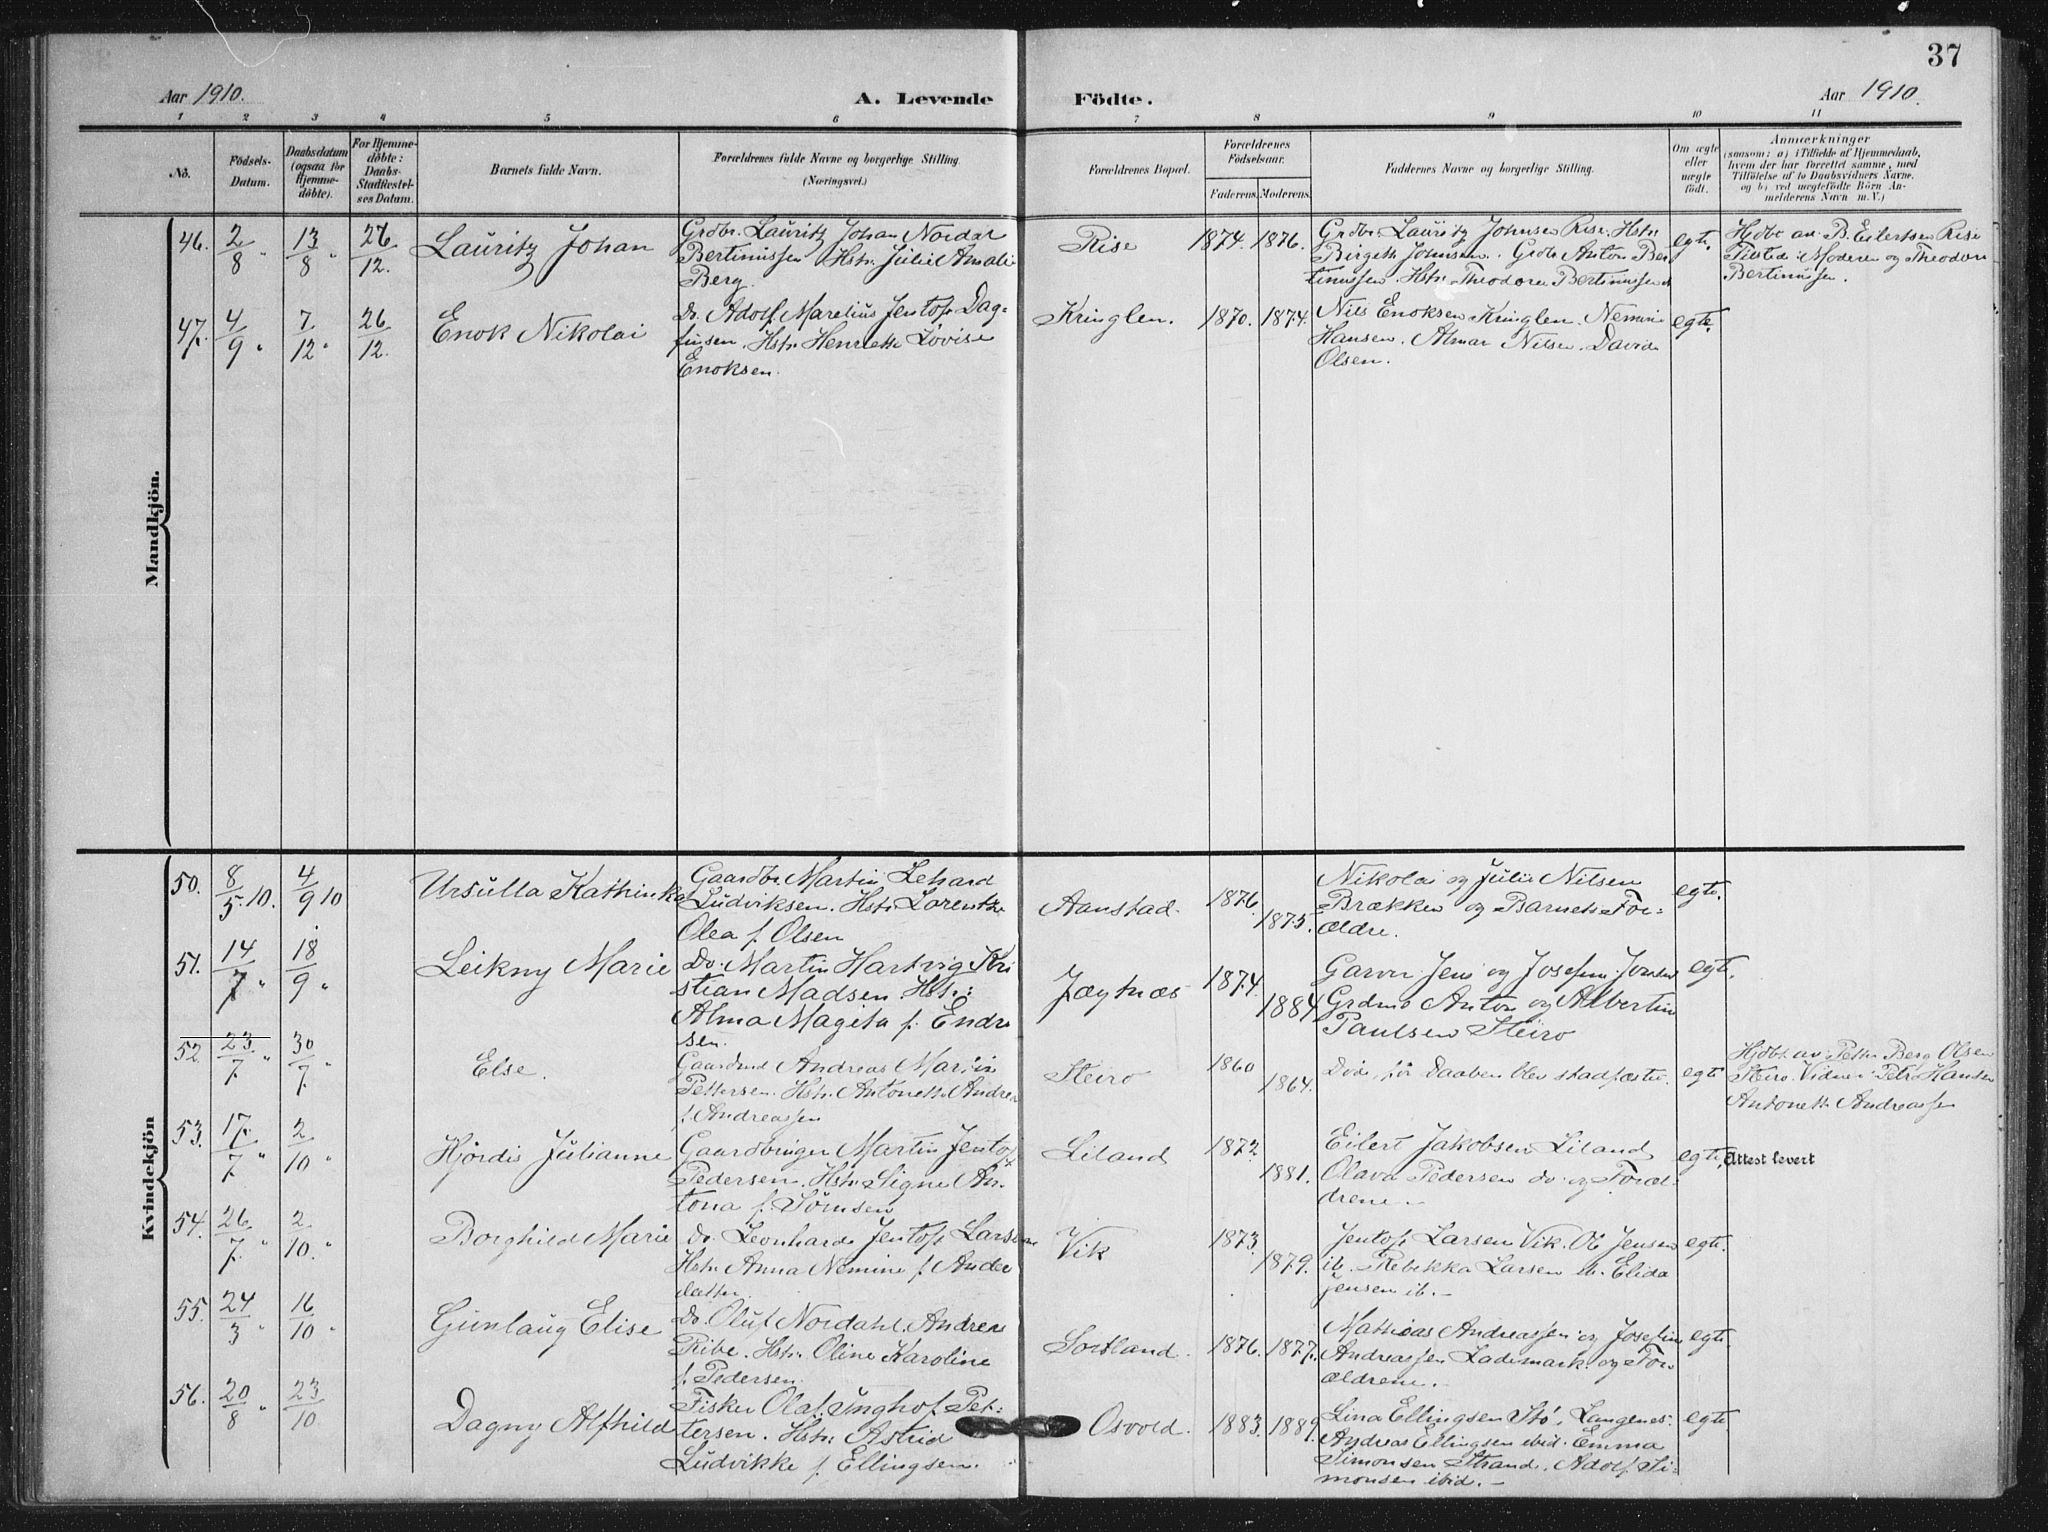 37
Aar 1910. A. Levende Födte. Aar 1910.
1 2 3 4 5 6 7 8 9 10 11
No.
Födsels-Datum.
Daabsdatum (ogsaa for Hjemmedöbte).
For Hjemmedöbte: Daabs-Stadfæstelses Datum.
Barnets fulde Navn.
Forældrenes fulde Navne og borgerlige Stilling.
(Næringsvei.)
Forældrenes Bopæl.
Forældrenes Födselsaar.
Faderens. Moderens.
Faddernes Navne og borgerlige Stilling.
Om ægte eller uægte födt.
Anmærkninger
(saasom: a) i Tilfælde af Hjemmedaab,
hvem der har forrettet samme, med
Tilföielse af to Daabsvidners Navne.
og b) ved uægtefödte Börn An-
melderens Navn m. V.)
Mandkjön.
46. 2/8 " 13/8 " 26/12. Lauritz Johan
Grdbr. Lauritz Johan Nordal
Bertinussen Hstr. Julie Amalie
Berg.
Rise 1874. 1876.
Grdbr. Lauritz Johnsen Rise. Hstr.
Birgette Johnsen. Grdbr Anton Ber
tinussen. Hstr. Theodora Bertinussen
egte.
Hjdbt av B. Eilertsen Rise
Tilsted: Moderen og Theodora
Bertinussen.
47. 4/9 " 7/12 " 26/12. Enok Nikolai
Do. Adolf Marelius Jentoft Dag-
finsen. Hstr. Henriette Lovise
Enoksen.
Kringlen. 1870. 1874.
Nils Enoksen Kringlen. Nemine
Hansen. Almar Nilsen. David
Olsen.
egte.
Kvindekjön
50. 8/5 10. 4/9 10 Ursulla Kathinka
Gaardbr. Martin Lehard
Ludviksen. Hstr. Lorentze
Olea f. Olsen
Aanstad. 1876. 1875.
Nikolai og Julie Nilsen
Brækken og Barnets For-
ældre.
egte.
51. 14/7 " 18/9 " Leikny Marie
Do. Martin Hartvig Kri
stian Madsen Hstr:
Alma Magita f. Endre
sen.
Jægtnæs 1874. 1884
Garver Jens og Josefine Jensen
Grdmd Anton og Albertin
Paulsen Steiro
egte.
52. 23/7 " 30/7 " Else.
Gaardmd Andreas Martin
Pettersen. Hstr. Antonette Andrea
f. Andreassen
Steiro 1860 1864.
Døde før Daaben blev stadfæstet.
egte
Hjdbt av Petter Berg Olsen
Steiro. Vidner: Petra Hansen
Antonette Andreassen
53. 17/7 " 2/10 " Hjørdis Julianne
Gaardbruger Martin Jentoft
Pedersen. Hstr. Signe An-
tona f. Sørnsen
Liland 1872. 1881.
Eilert Jakobsen Liland
Olava Pedersen do. og Foræl-
drene.-
egte.
Attest levert
54. 26/7. " 2/10. " Borghild Marie
do. Leonhard Jentoft Larsen
Hstr. Anna Nemine f. Ander
datter.
Vik 1873. 1879.
Jentoft Larsen Vik. Ole Jensen
ib. Rebekka Larsen ib. Elida
Jensen ib.-
egte.
55. 24/3 " 16/10 " Gunlaug Elise
do. Oluf Nordahl Andreas
Ribe. Hstr. Oline Karoline
f. Pedersen.
Sortland. 1876. 1877.
Mathias Andreassen og Josefine
Andreassen Lademark. og For
ældrene.-
egte.
56. 20/8 " 23/10 Dagny Alfhild
Fisker Olaf Inghof Pet-
tersen. Hstr. Astrid
Ludvikke f. Ellingsen.
Osvold. 1883. 1889.
Lina Ellingsen Stø, Langenes.
Andreas Ellingsen ibid. Emma
Simonsen Strand. Adolf Si-
monsen ibid.-
egte.